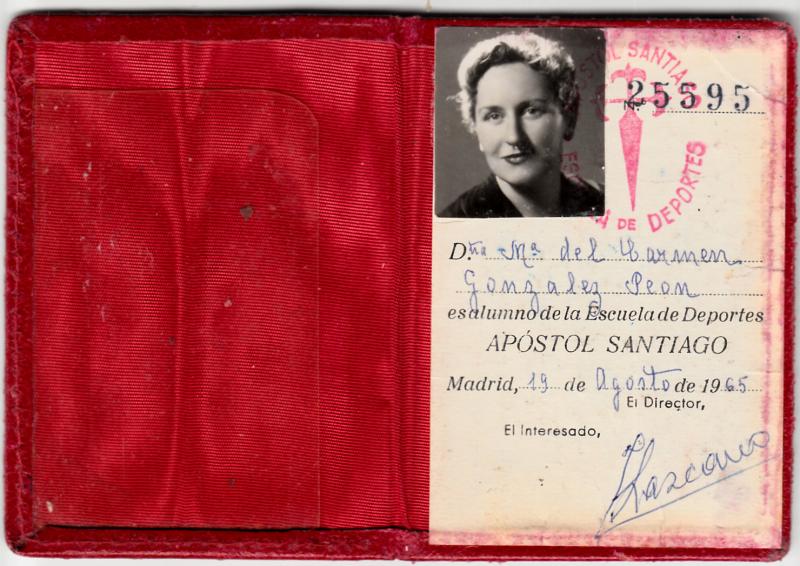 APÓSTOL SANTIAGO
ESCUELA DE DEPORTES
Nº 25595
D.ña Mª del Carmen
Gonzalez Peon
es alumno de la Escuela de Deportes
APÓSTOL SANTIAGO
Madrid, 19 de Agosto de 1965
El Director,
El Interesado,